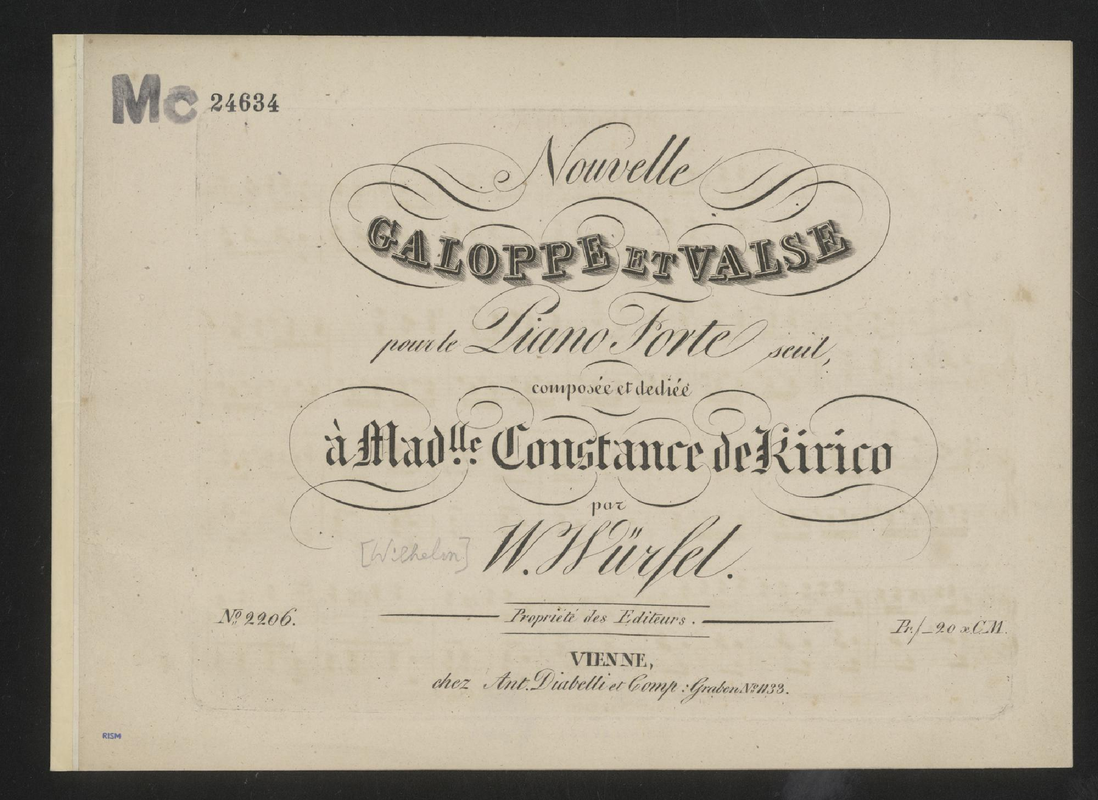 Mc 24634
Nouvelle
GALOPPE ET VALSE
pour le Piano Forte seul,
composée et dediée
à Madlle. Constance de Kirico
par
[Wilhelm] W. Würfel.
No. 2206.
Propriété des Editeurs.
Pr. f_20 x C.M.
VIENNE,
chez Ant. Diabelli et Comp: Graben No. 1133.
RISM